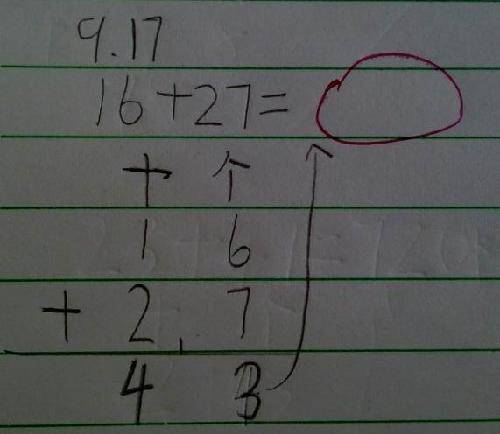 9.17
16+27=
十 个
1 6
+ 2 1 7
4 3